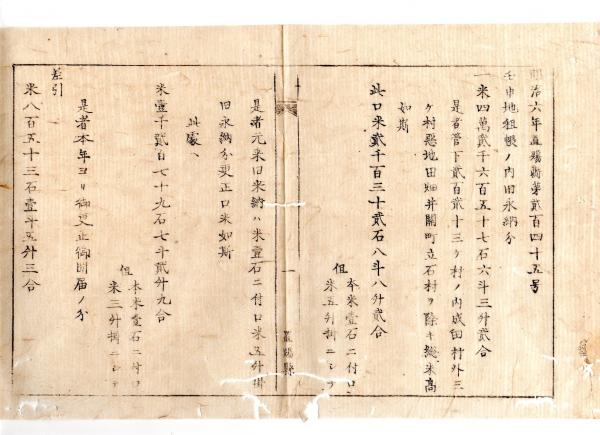 明治六年置賜縣第貳百四十五号
壬申地租帳ノ内旧永納分
一米四萬貳千六百五十七石六斗三升貳合
是者管下貳百貳十三ヶ村ノ内成田村外三
ヶ村懸地田畑并開町立石村ヲ除キ総米高
如斯
此口米貳千百三十貳石八斗八升貳合
但 本米壹石ニ付口
米五升掛ニシテ
是者元来旧米納ハ米壹石ニ付口米五升掛
旧永納分更正口米如斯
此處、
米壹千貳百七十九石七斗貳升九合
但 本米壹石ニ付口
米三升掛ニシテ
是者本年ヨリ御更正御聞届ノ分
差引
米八百五十三石壹斗五升三合
一
置賜縣